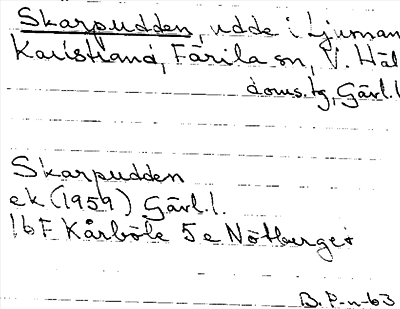 Skarpudden, udde i Ljusnan
Karlstrand, Färila sn, V. Häl
doms. tg, Gävl. l
Skarpudden
ek (1959) Gävl. l.
16 F Kårböle 5 e Nötberget
B. P-n-63